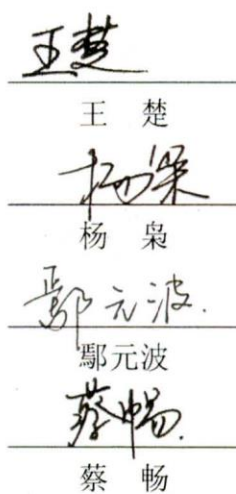 王楚
王 楚
杨枭
杨 枭
鄢元波.
鄢元波
蔡畅.
蔡 畅